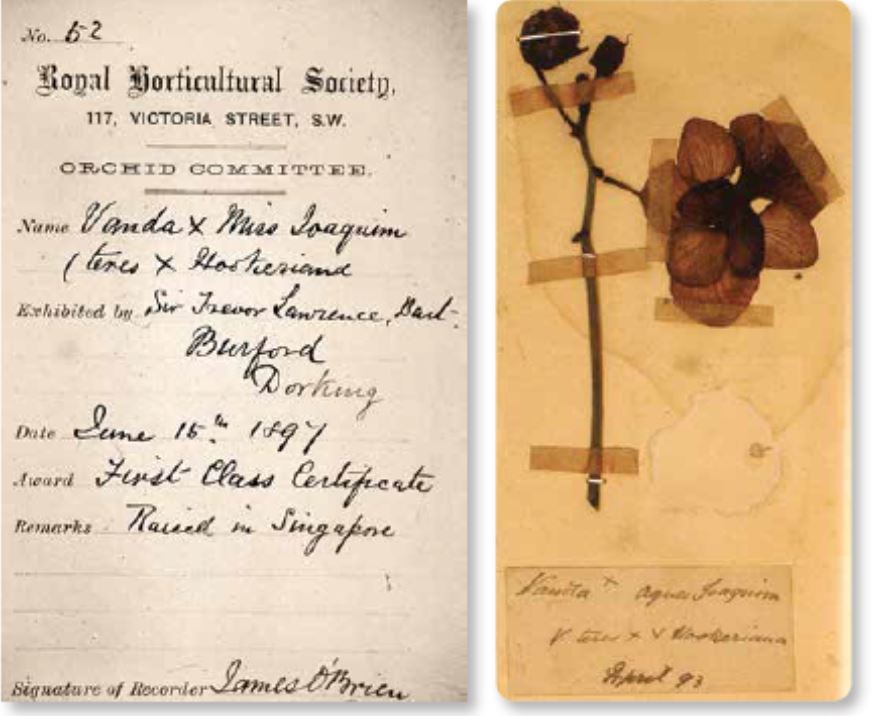 No. 52
Royal Horticultural Society,
117, VICTORIA STREET, S.W.
ORCHID COMMITTEE.
Name Vanda x Miss Joaquim
(teres x Hookeriana
Exhibited by Sir Trevor Lawrence, Bart.
Burford
Dorking
Date June 15th 1897
Award First Class Certificate
Remarks Raised in Singapore
Signature of Recorder James O'Brien
Vanda x agnes Joaquim
V. teres x V Hookeriana
April 93